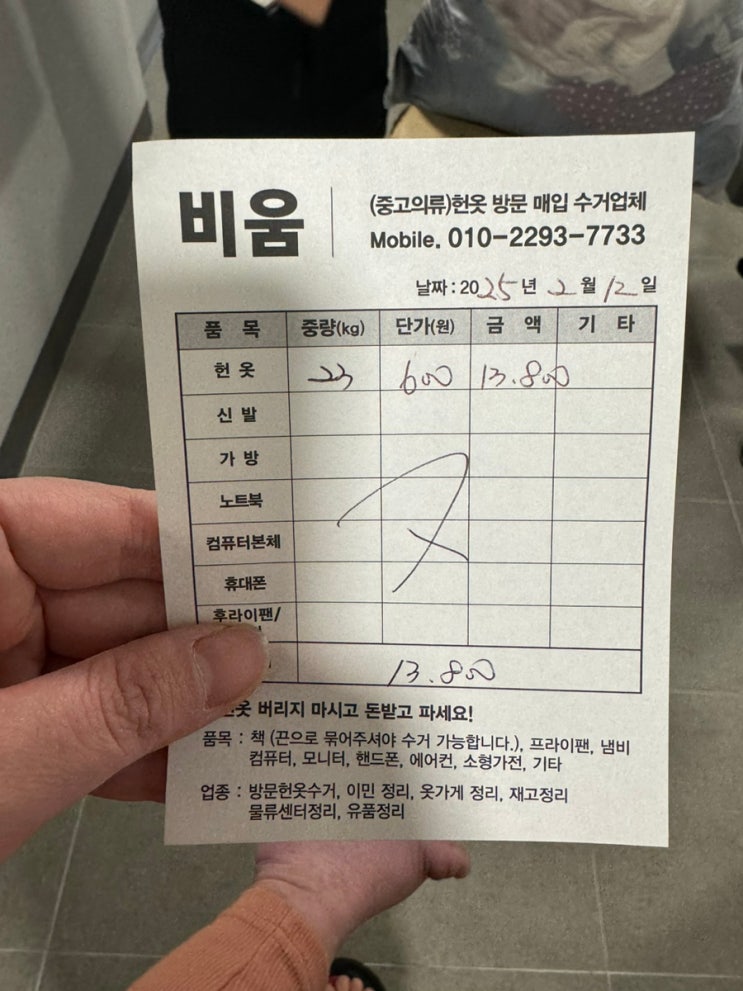 비움
(중고의류)헌옷 방문 매입 수거업체
Mobile. 010-2293-7733
날짜 : 2025년 2월 12일
품 목 중량(kg) 단가(원) 금 액 기 타
헌 옷 23 600 13.800
신 발
가 방
노트북
컴퓨터본체
휴대폰
후라이팬/
13.800
헌옷 버리지 마시고 돈받고 파세요!
품목 : 책 (끈으로 묶어주셔야 수거 가능합니다.), 프라이팬, 냄비
컴퓨터, 모니터, 핸드폰, 에어컨, 소형가전, 기타
업종 : 방문헌옷수거, 이민 정리, 옷가게 정리, 재고정리
물류센터정리, 유품정리